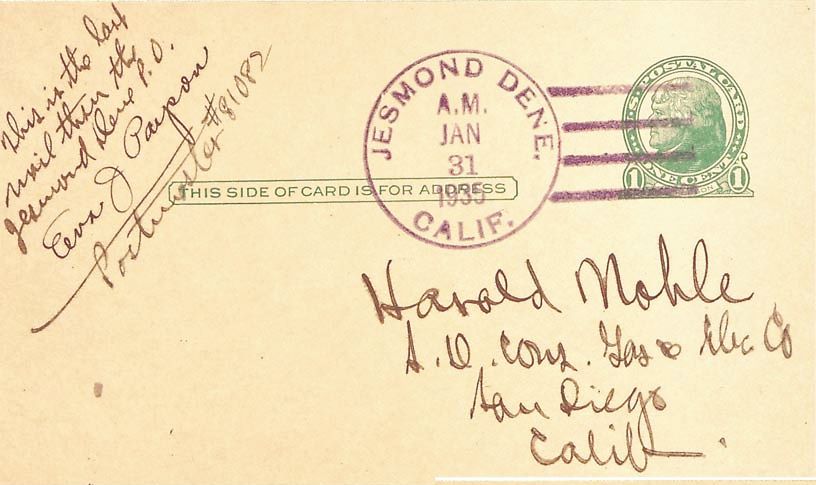 This is the last
mail thru the
Jesmond Dene P.O.
Eva J
Postmaster #81082
JESMOND DENE.
A.M.
JAN
31
1935
CALIF.
U.S. POSTAL CARD
1 ONE CENT 1
THIS SIDE OF CARD IS FOR ADDRESS
Harold Nohle
S.D. Cons. Gas & Elec. Co
San Diego
Calif.